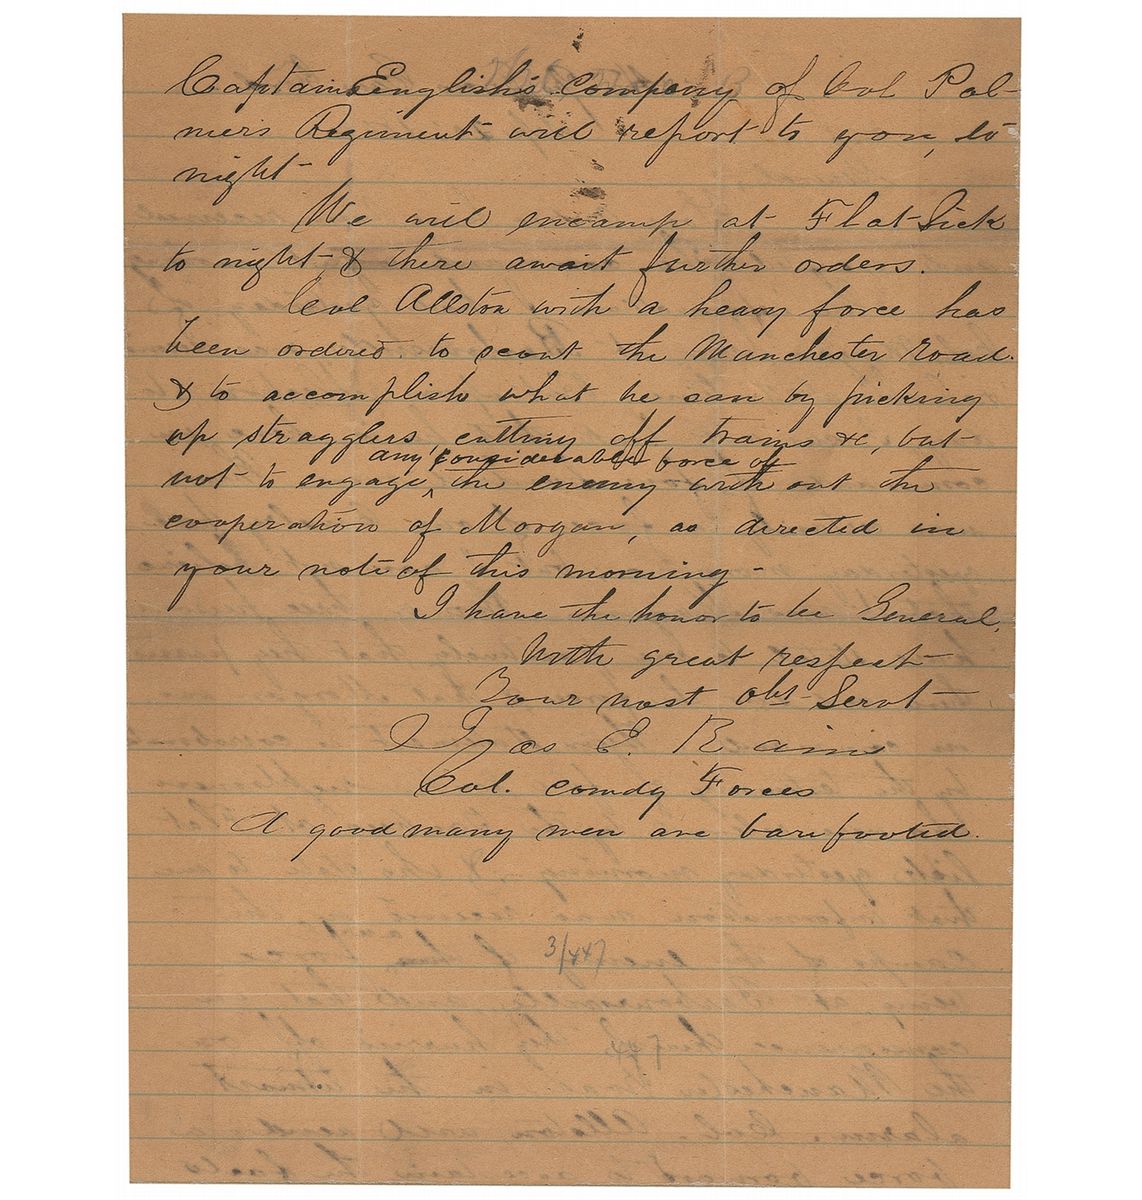 Captain English's company of Col Pal-
mer's Regiment will report to you, to
night-
We will encamp at Flat Lick
to night- & there await further orders.
Col Allston with a heavy force has
been ordered. to scout the Manchester road.
& to accomplish what he can by picking
up stragglers, cutting off trains &c, but-
any considerable force of
not to engage, ^ the enemy with out the
cooperation of Morgan, as directed in
your note of this morning-
I have the honor to be General,
With great respect-
Your most obt- Servt
Jas E. Rains
Col. comdg Forces
A good many men are barefooted.
3/447
447